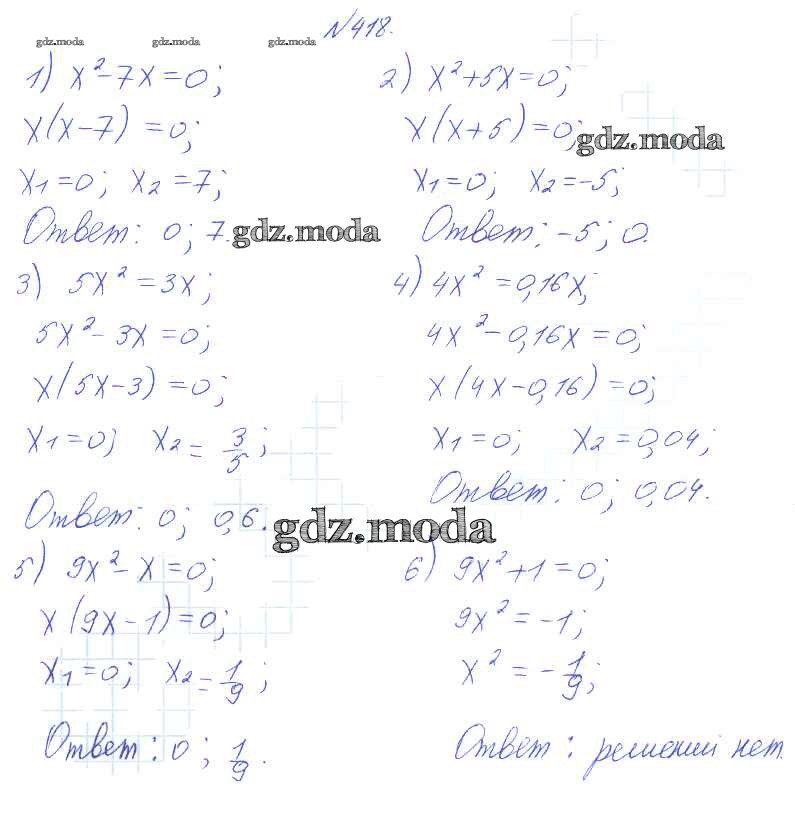 №418.
gdz.moda gdz.moda gdz.moda
1) x²-7x=0;
x(x-7)=0;
x1=0; x2=7;
Ответ: 0; 7.
gdz.moda
2) x²+5x=0;
x(x+5)=0;
gdz.moda
x1=0; x2=-5;
Ответ: -5; 0.
3) 5x²=3x;
5x²-3x=0;
x(5x-3)=0;
x1=0; x2=3/5;
Ответ: 0; 0,6.
4) 4x²=0,16x;
4x²-0,16x=0;
x(4x-0,16)=0;
x1=0; x2=0,04;
Ответ: 0; 0,04.
gdz.moda
5) 9x²-x=0;
x(9x-1)=0;
x1=0; x2=1/9;
Ответ: 0; 1/9.
6) 9x²+1=0;
9x²=-1;
x²=-1/9;
Ответ: решений нет.